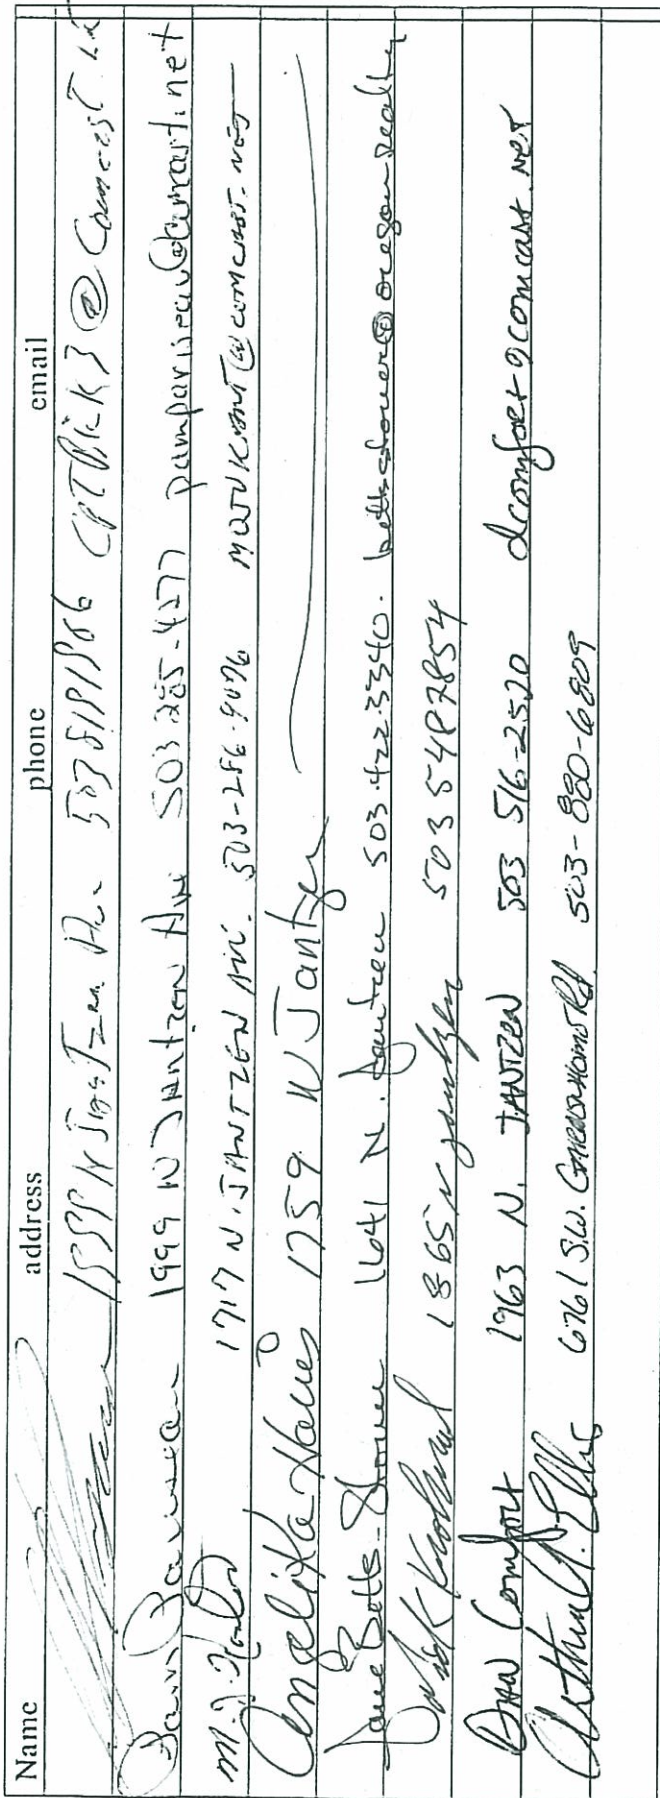 Name address phone email
N Jantzen Ave 5038191866 CPTRICK3@Comcast.
Pam 1999 N Jantzen Ave 503 285-4277 pampariseau@comcast.net
M.J. 1717 N. JANTZEN AVE. 503-286-9096 @COMCAST.NET
Angelika Haves 1759 N Jantzen
Jane Betts-Stover 1641 N. Jantzen 503.422.3340. bettsstover@oregonrealty
1865 N Jantzen 503 5487854
DAN Comfort 1963 N. JANTZEN 503 516-2520 dcomfort9comcast.net
Arthur A. Ellis 6761 S.W. 503-880-6809